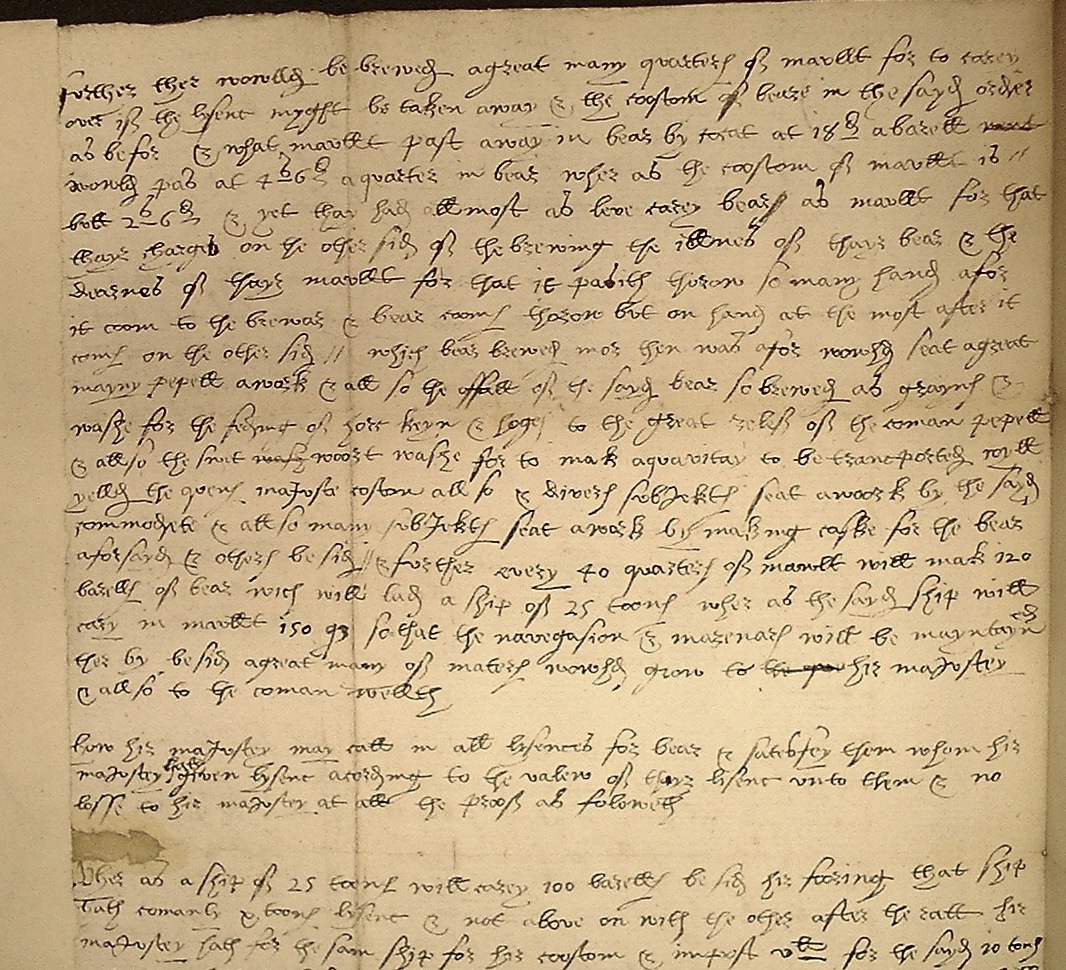 further ther wowlld be brewed a great many quarters of mavllt for to carey
over if the lysenc myght be taken away & the coostom of beare in the sayd order
as befor & what mavllt past away in bear by cocat at 18d a barell
wowld pas at 4s 6d a quarter in bear wher as the coostom of mavllt is //
bvtt 2s 6d & yet thay had allmost as leve carey bear as mavllt for that
thayr charges on the other sid of the brewing the illnes of thayr bear & the
dearnes of thayr mavllt for that it pasith thorow so many hands afor
it coom to the brewar & bear cooms thorow bvt on hand at the most after it
coms on the other sid // which bear brewed mor then was afor wowld seat a great
mayny pepell awork & all so the offall of the sayd bear so brewed as grayns &
washe for the feding of hors keyn & hoges to the great relef of the coman pepell
& allso the swet woort washe for to mak aquavitay to be transported will
yelld the quens maJvste costom all so & divers svbJekts seat a woork by the sayd
commodyte & all so many svbJekts seat awork by making caske for the bear
aforsayd & others besids // & further every 40 quarters of mavllt will mak 120
barells of bear wich will lad a ship of 25 toons wher as the sayd ship will
cary in mavllt 150 qr so that the navegasion & marenars will be mayntayned
ther by besids a great many of maters wowld grow to his maJvstey
& allso to the coman wellth
how his maJvstey may call in all lysences for bear & satesfey them whom his
maJvstey hath given lysenc acording to the valew of thayr lysenc vnto them & no
losse to his maJvstey at all the proof as foloweth
Wher as a ship of 25 toons will carey 100 barells besids his foozing that ship
hath comanly x toons lysenc & not above on with the other after the ratt his
maJvstey hath for the sam ship for his coostom & impost vli for the sayd 10 tons